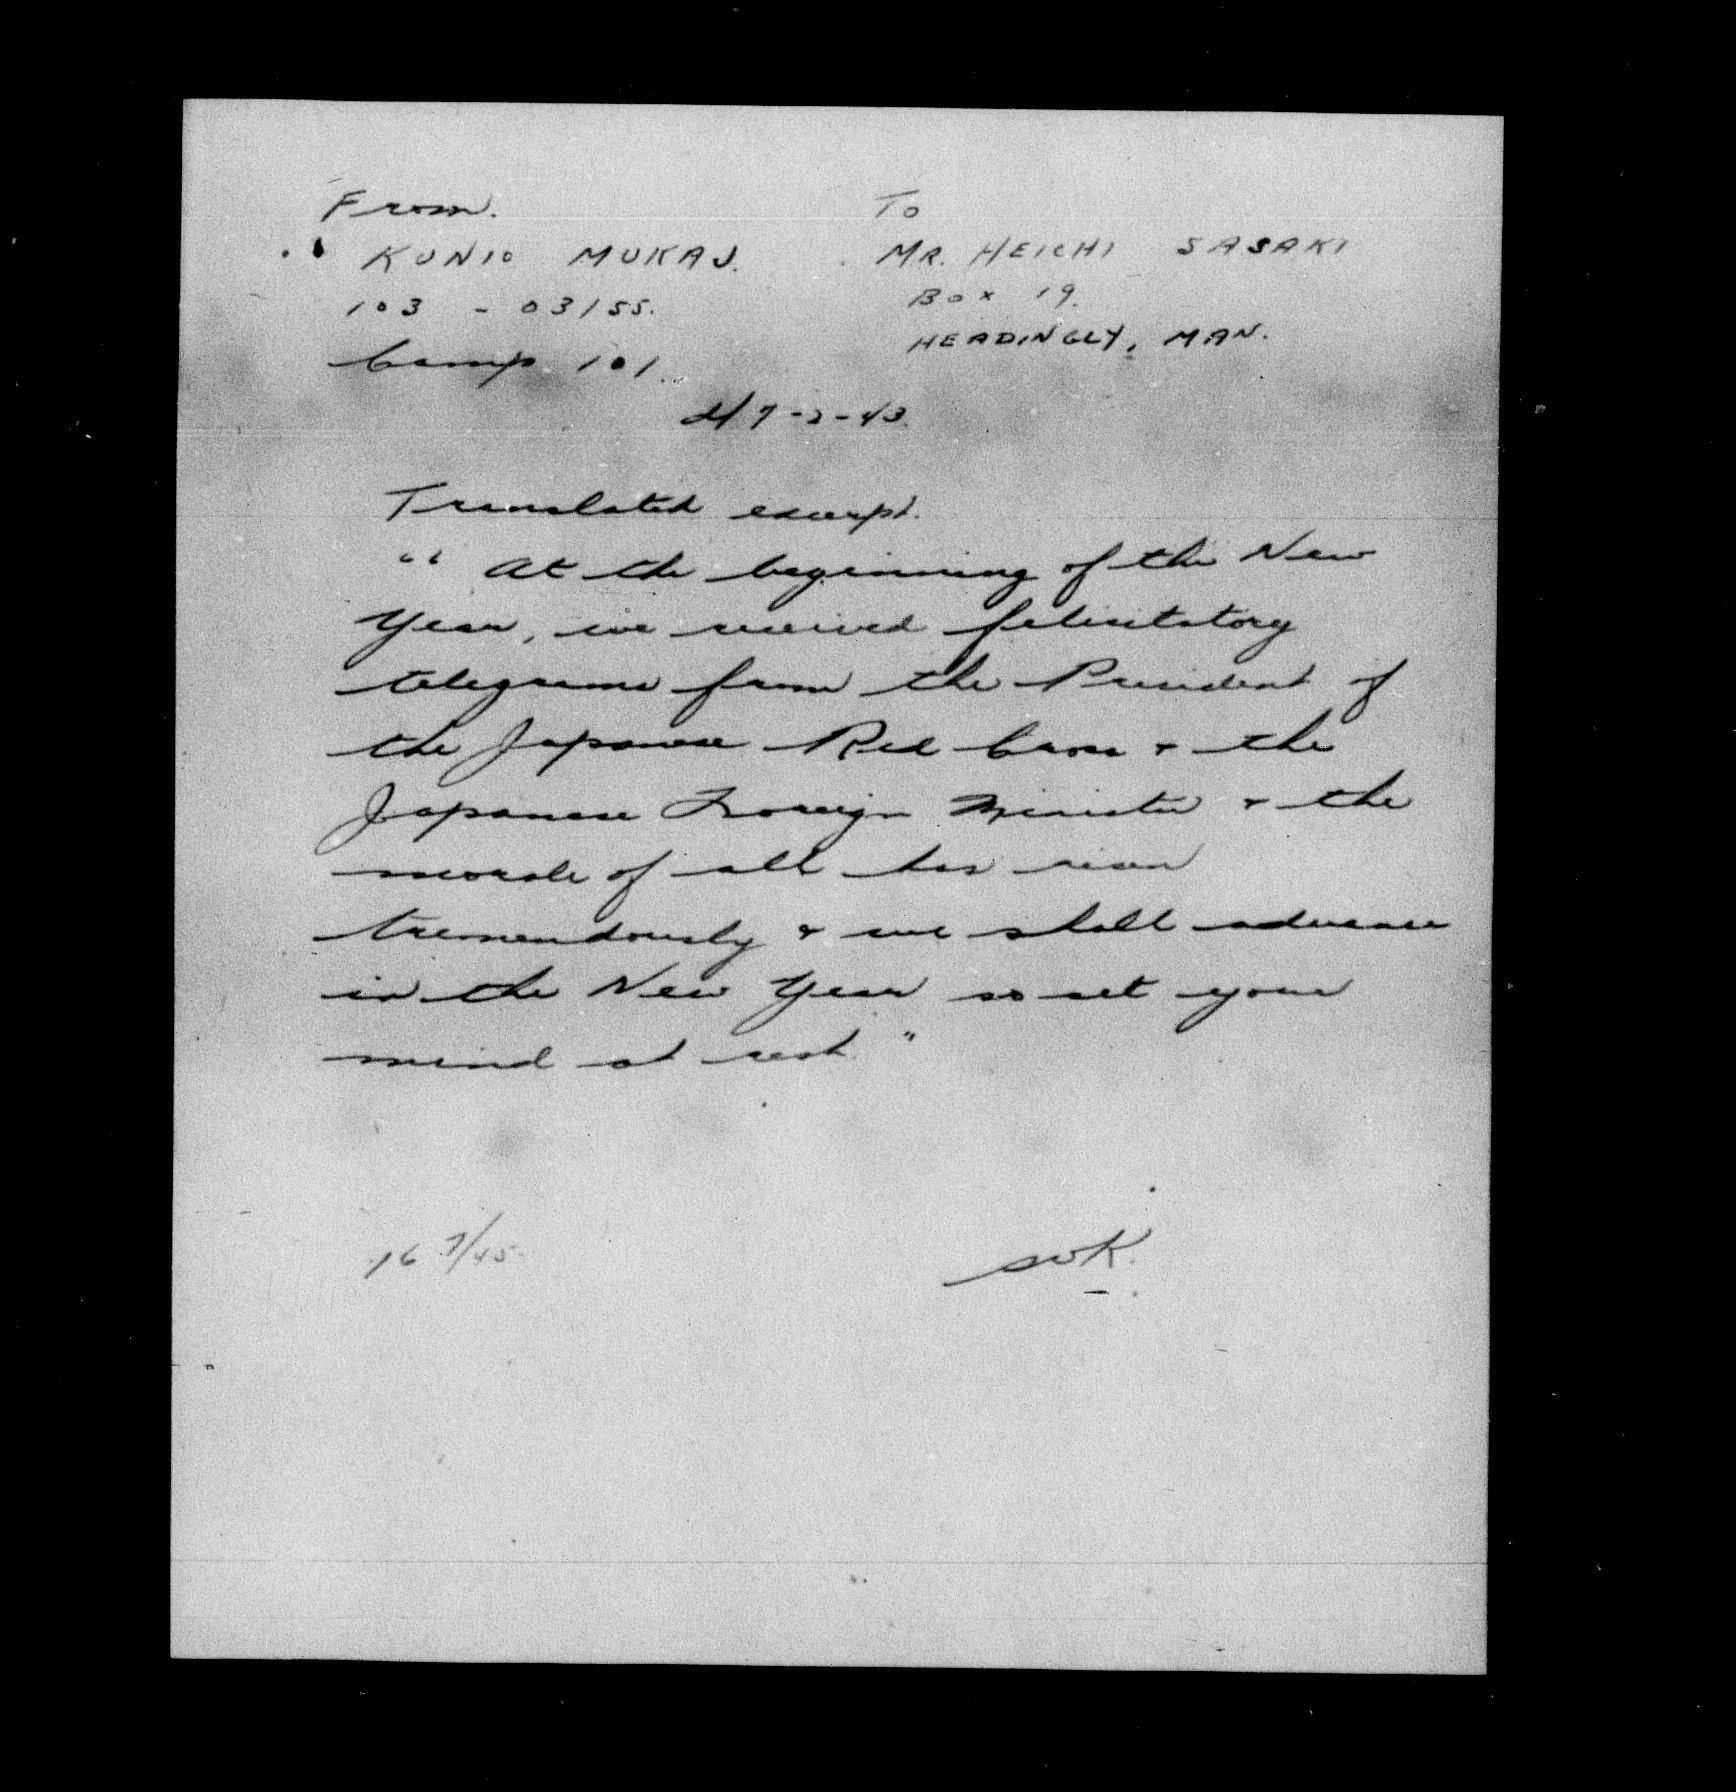 From.
To
KUNIO MUKAI.
MR. HEICHI SASAKI
103 - 03155.
Box 19.
Camp 101.
HEADINGLY, MAN.
7-2-43.
Translated excerpt.
"At the beginning of the New
Year, we received felicitatory
telegrams from the President of
the Japanese Red Cross & the
Japanese Foreign Minister & the
morale of all has risen
tremendously & we shall advance
in the New Year so set your
mind at rest"
16 7/45